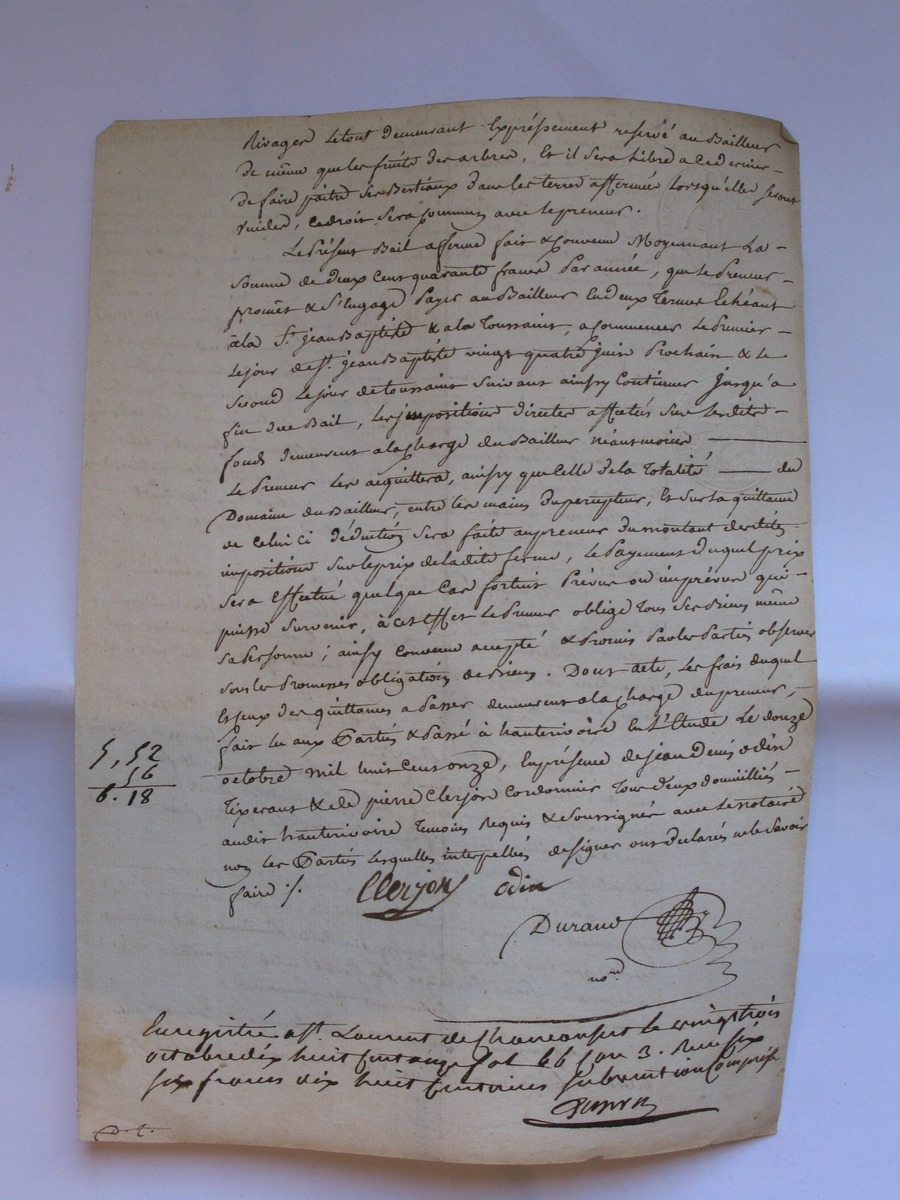 Rivages le tout demeurant Expressement reservé au Bailleur
de même que les fruits des arbres, Et il sera libre a ce dernier
de faire paitre ses Bestiaux dans les terres affermées lorsqu'elles seront
vuides, ce droit sera commun avec le preneur.
Le Présent Bail a ferme fait & convenu Moyennant La
Somme de deux cent quarante francs Par année, que le Preneur
promet & S'Engage Payer au Bailleur En deux Termes Echéant
à la St. jean Baptiste & a la Toussaint, a commencer le Premier
Le jour de St. jean Baptiste vingt quatre juin Prochain & le
Second le jour de toussaint Suivant ainsy Continuer jusqu'a
fin du Bail, les impositions directes affectés sur lesdits
fonds demeurent a la charge du Bailleur néantmoins
Le Preneur les acquittera, ainsy que celle de la Totalité du
Domaine du Bailleur, entre les mains du percepteur, Et sur la quittance
de celui ci déduction sera faite au preneur du montant desdites
impositions sur le prix de ladite ferme, le Payement duquel prix
sera Effectué quelque Cas fortuit Prévus ou imprévus qui
puisse survenir, à cet Effet le Preneur oblige tous ses Biens même
sa Personne; ainsy convenu accepté & Promis Par les Parties observer
sous les Promesses obligations de Biens. Dont acte, les frais duquel
Et ceux des quittances a Passer demeurent a la charge du preneur,
fait lu aux Parties & Passé à hauterivoire En l'Etude Le douze
octobre mil huit cent onze, En présence de jean Denis odin
Tixerant & de pierre Clerjon Cordonnier Tous deux domiciliés
audit hauterivoire Temoins Requis & Soussignés avec le notaire
non les Parties lesquelles interpellées de signer ont declarés ne le Savoir
faire ./.
Clerjon odin
Durand
nore
5,52
56
6.18
Enregistré a St. Laurent de Chamousset le vingt trois
octobre dix huit cent onze fol 66 Con 3. Reçu six
six francs dix huit centimes subvention Comprise
D.t.